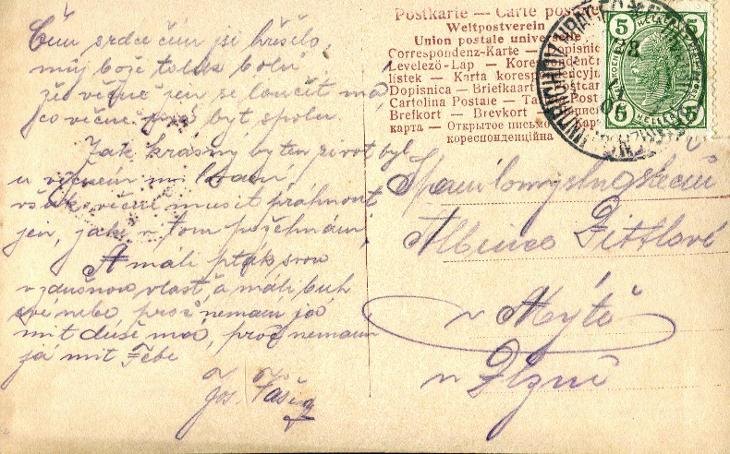 Čím srdce čím jsi hřešilo,
můj bože tolik bolu
že věčně jen se loučit má,
co věčně má být spolu.
Jak krásný by ten život byl
u věčném milování
však věčně musit práhnout
jen, jak v tom požehnání,
A má-li pták svou
vzdušnou vlast, a má-li bůh
své nebe, proč nemám já
mít duše má, proč nemám
já mít Tebe
Jos. Vašíq
Postkarte — Carte postale
Weltpostverein
Union postale universelle
Correspondenz-Karte — Dopisnice
Levelező-Lap — Korespondenční
lístek — Karta korespondencyjna
Dopisnica — Briefkaart — Postcard
Cartolina Postale — Tarjeta Post
Brefkort — Brevkort —
карта — Открытое письмо
кореспонденційна
5 5
5 5
HELLER HELLER
Albince Dittlové
v Mýtě
u Plzně